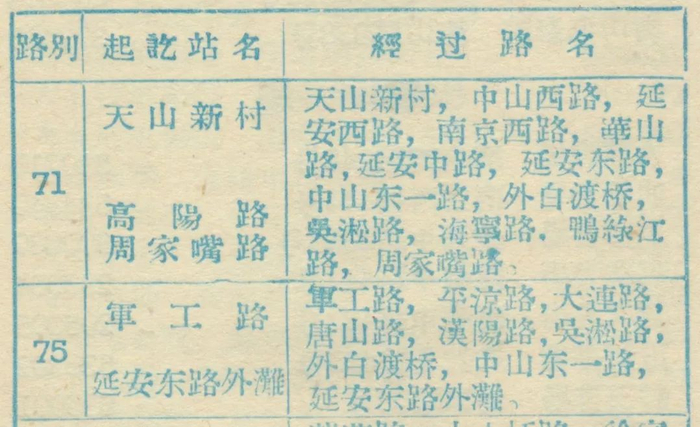 路別 起訖站名 經过路名
71
天山新村
高陽路
周家嘴路
天山新村, 中山西路, 延
安西路, 南京西路, 華山
路, 延安中路, 延安东路,
中山东一路, 外白渡桥,
吳淞路, 海寧路. 鴨綠江
路, 周家嘴路、
75
軍工路
延安东路外灘
軍工路, 平涼路, 大連路,
唐山路, 漢陽路, 吳淞路,
外白渡桥, 中山东一路,
延安东路外灘、